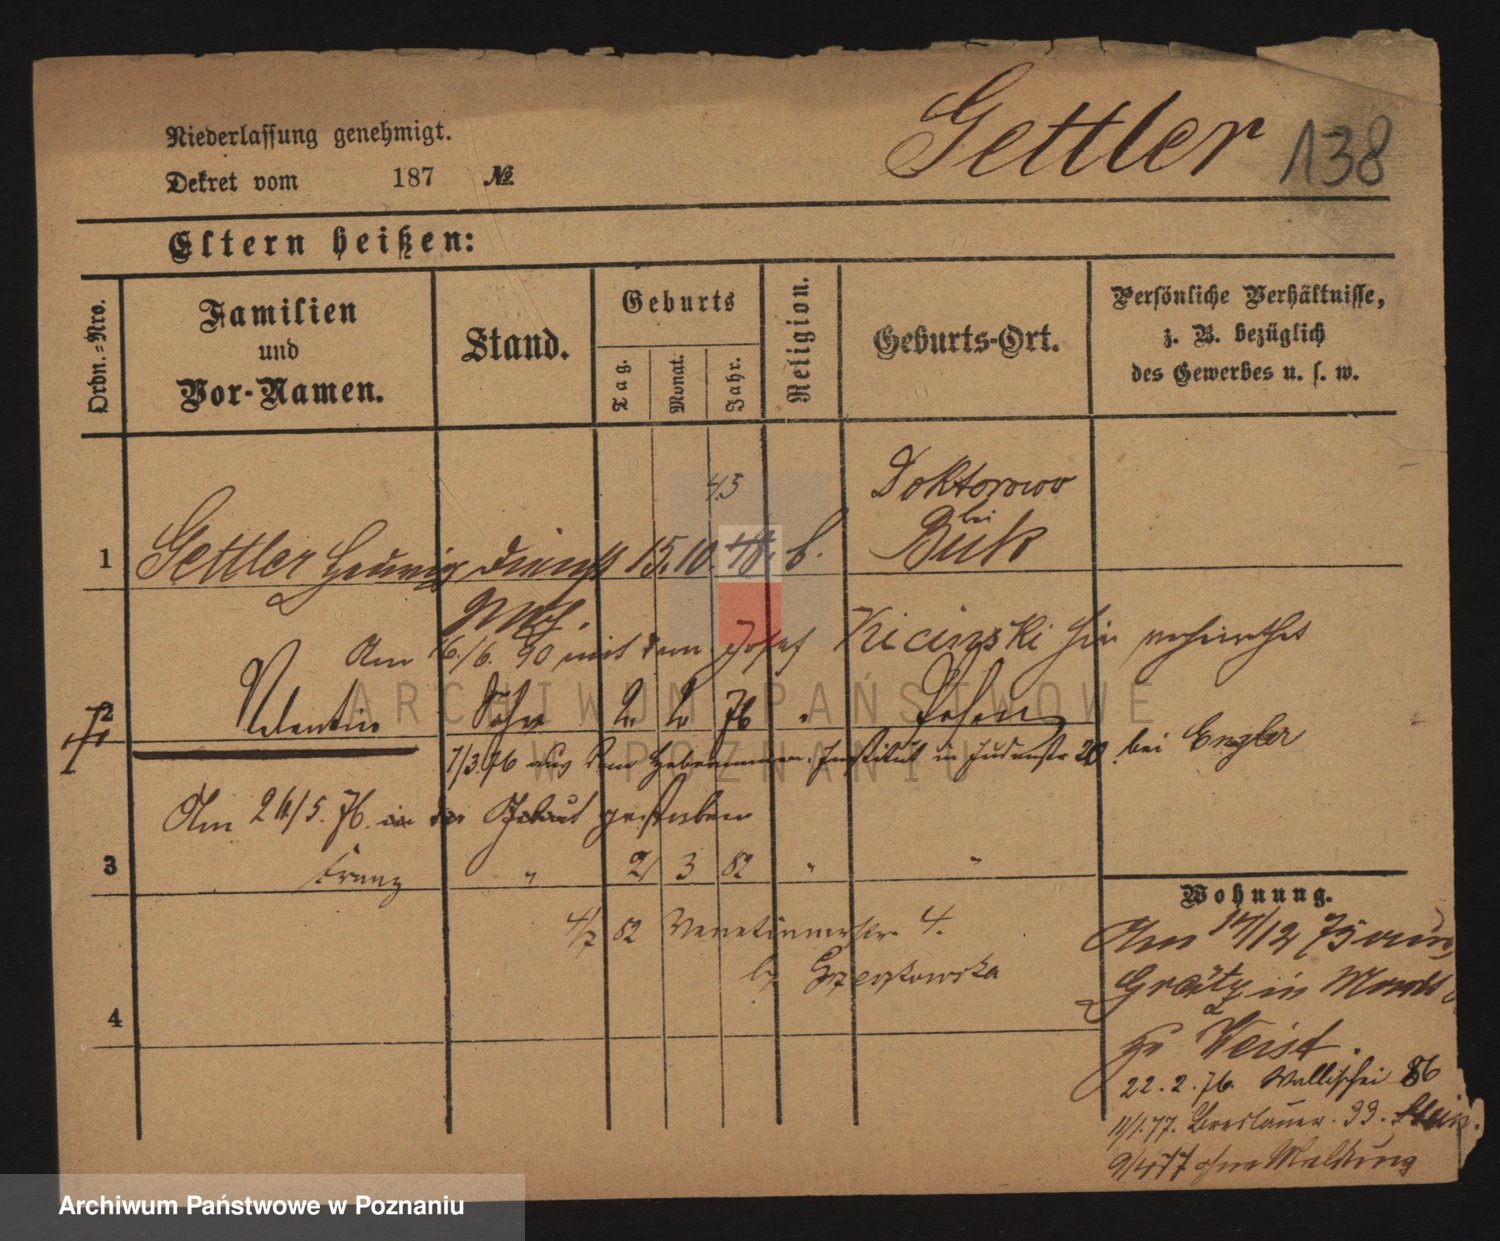 Gettler 138
Niederlassung genehmigt.
Dekret vom 187 №.
Eltern heißen:
Ordn.=Nro.
Familien
und
Vor-Namen.
Stand.
Geburts
Tag.
Monat.
Jahr.
Religion.
Geburts-Ort.
Persönliche Verhältnisse,
z. B. bezüglich
des Gewerbes u. s. w.
43
Doktorowo
bei
1 Gettler Hedwig 15. 10. Buk
Am 16./6. 90 mit dem Josef Kicinski hier verheirathet
2 Valentin Sohn 2 2 76 Posen
7/3.76 aus dem Hebammen-Institut in Judenstr 20. bei Engler
Am 26/5. 76. in der gestorben
3 Franz " 2/ 3 82 " "
4/7 82 Venetianerstr 4.
4
Wohnung.
Am 17/12 75 von
Graetz in
zu Weist.
22. 2. 76. Wallischei 86
11/1. 77. Breslauer. 33.
9/4 77 ohne Meldung
ARCHIWUM PAŃSTWOWE
W POZNANIU
Archiwum Państwowe w Poznaniu